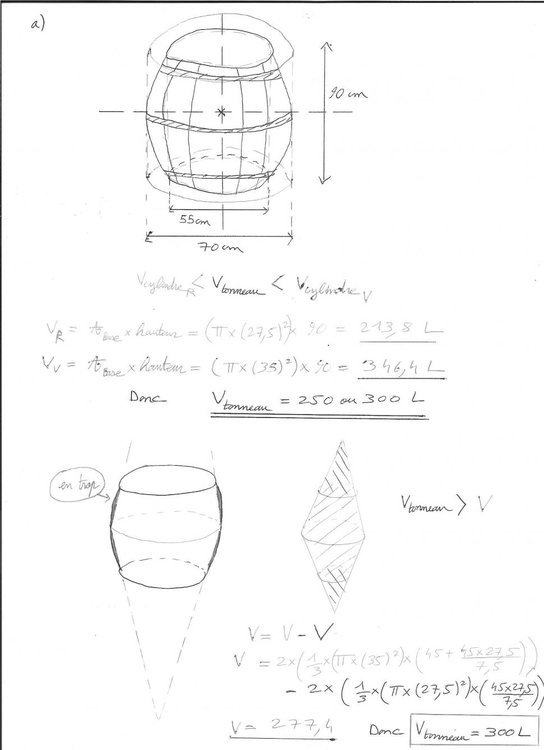 a)
90 cm
55cm
70cm
Vcylindre_R < Vtonneau < Vcylindre_V
V_R = A_base × hauteur = (π × (27,5)²) × 90 = 213,8 L
V_V = A_base × hauteur = (π × (35)²) × 90 = 346,4 L
Donc Vtonneau = 250 ou 300 L
en trop
Vtonneau > V
V = V - V
V = 2×(1/3 × (π × (35)²) × (45 + 45×27,5/7,5))
- 2×(1/3 × (π × (27,5)²) × (45×27,5/7,5))
V = 277,4 Donc Vtonneau = 300 L